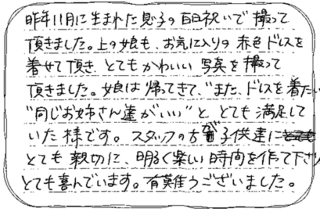 昨年11月に生まれた息子の百日祝いで撮って
頂きました。上の娘も、お気に入りの赤色ドレスを
着せて頂き とてもかわいい写真を撮って
頂きました。娘は帰ってきて、"また、ドレスを着たい"
"同じお姉さん達がいい"と とても満足して
いた様です。スタッフの方 子供達に
とても親切に、明るく楽しい時間を作て下さり
とても喜んでいます。有難うございました。